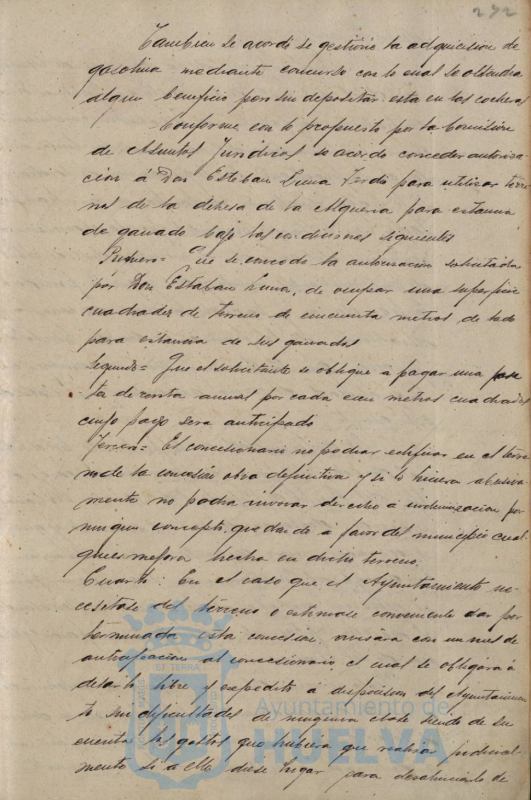 272
Tambien se acordó se gestione la adquicision de
gasolina mediante concurso con lo cual se obtendra
algun beneficio para sin depositar esta en las cocheras
Conforme con lo propuesto por la Comision
de Asuntos Juridicos se acordo conceder autoriza
cion á Don Esteban Luna para utilizar terre
nos de la dehesa de la Alqueria para estancia
de ganado bajo las condiciones siguientes
Primero= Que se concede la autorizacion solicitada
por Don Estaban Luna, de ocupar una superficie
cuadrada de terreno de cincuenta metros de lado
para estancia de sus ganados
Segundo= Que el solicitante se oblique a pagar una pese
ta de renta anual por cada cien metros cuadrados
cuyo pago sera anticipado
Tercero= El concesionario no podrá edificar en el terre
no de la concesión obra definitiva y si lo hiciera abusiva
mente no podra invocar derecho á indemnizacion por
ningun concepto, quedando a favor del municipio cual
quier mejora hecha en dicho terreno.
Cuarto: En el caso que el Ayuntamiento ne-
cesitase del terreno o estimase conveniente dar por
terminada esta concesion, avisara con un mes de
anticipacion al concesionario, el cual se obligará a
dejarlo libre y expedito á disposicion del Ayuntamien
to sin dificultades de ninguna clase siendo de su
cuenta los gastos que hubiera que realizar judicial-
mente si a ello diese lugar para desahuciarlo de
Ayuntamiento de
HUELVA